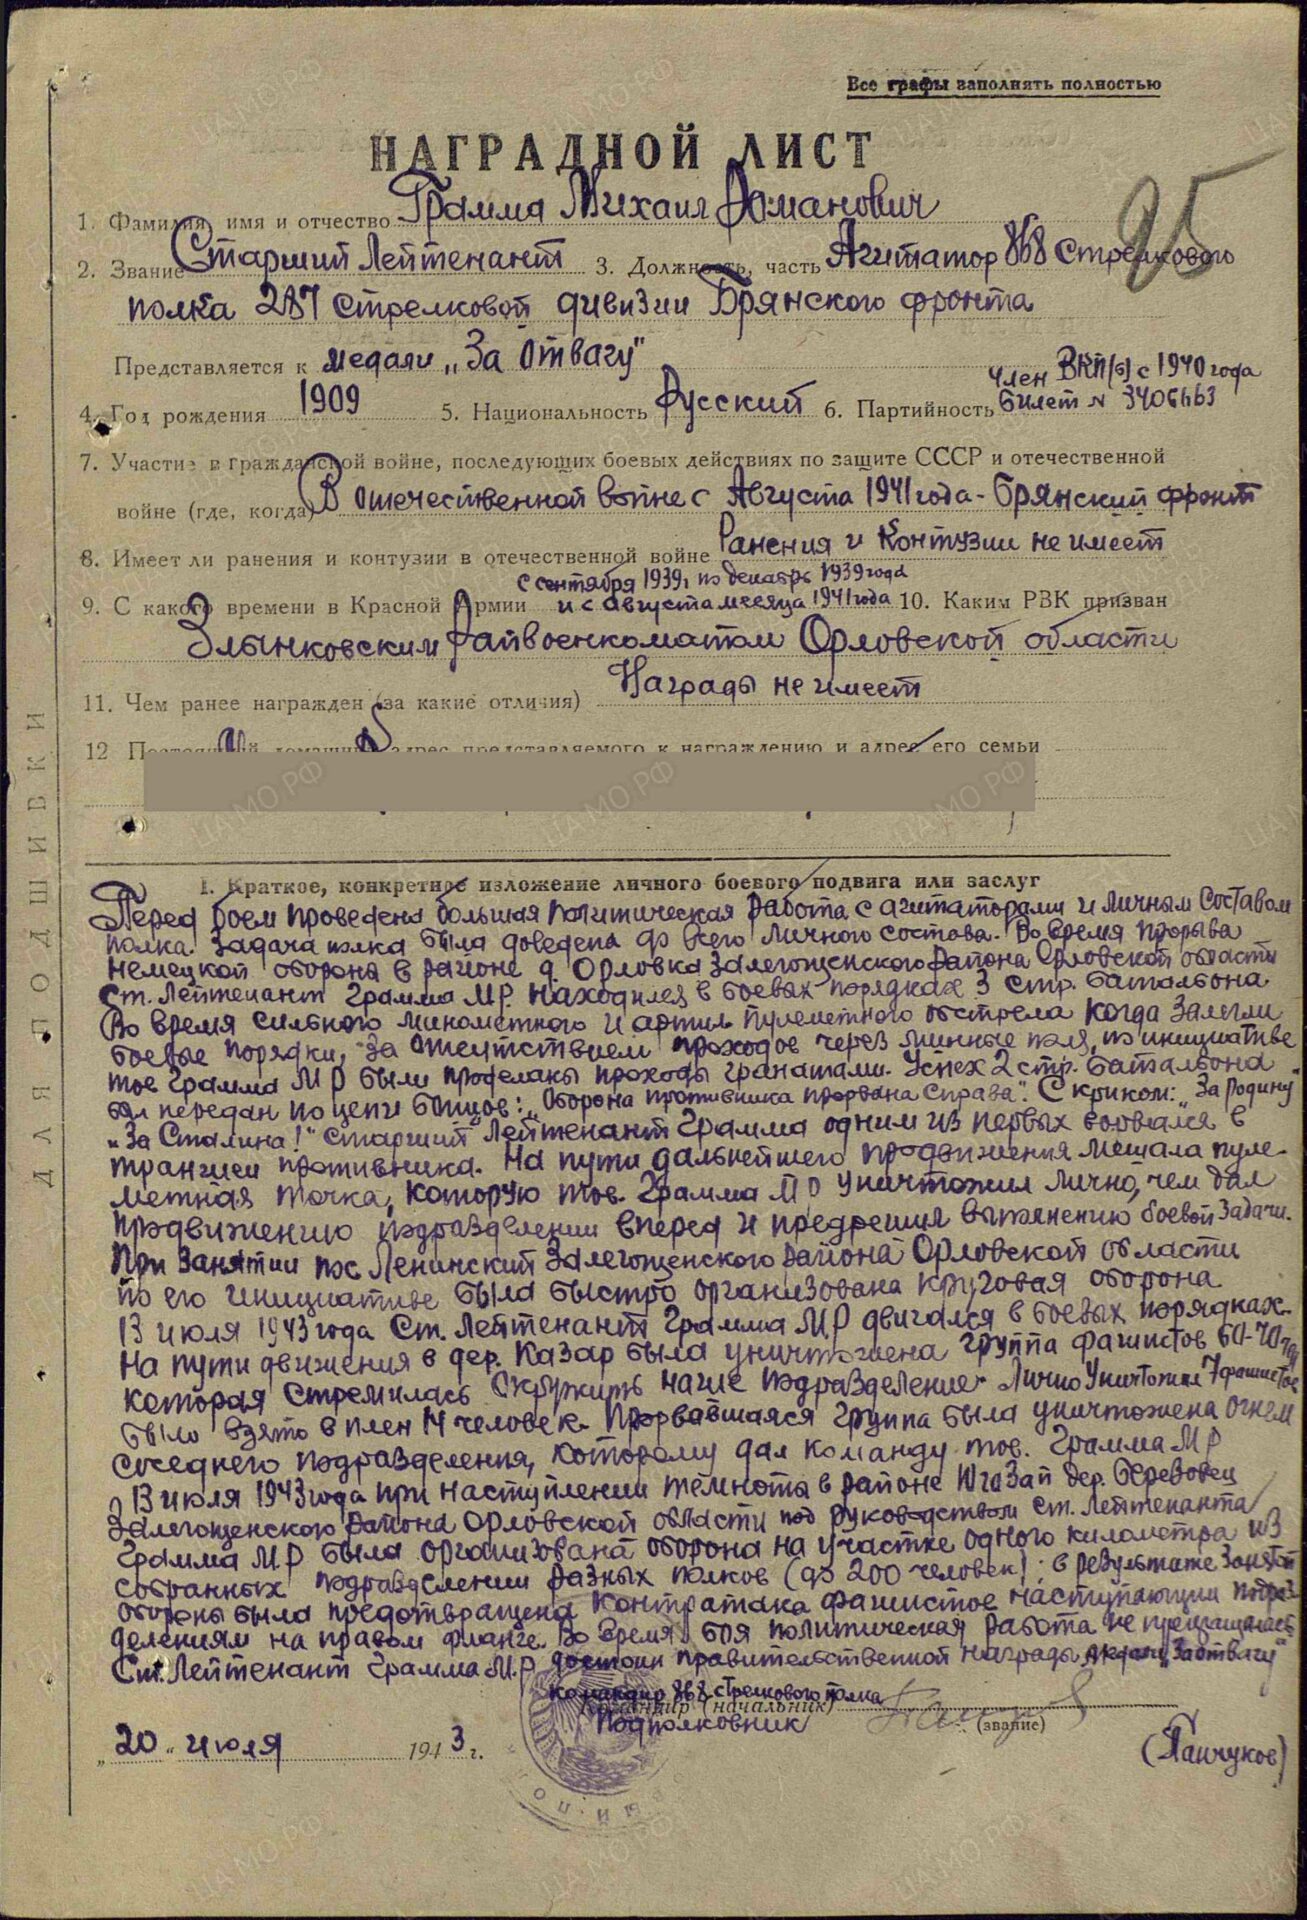 Все графы заполнять полностью
НАГРАДНОЙ ЛИСТ
25
1. Фамилия, имя и отчество Грамма Михаил Романович
2. Звание Старший Лейтенант 3. Должность, часть Агитатор 868 Стрелкового
полка 287 Стрелковой дивизии Брянского фронта
Представляется к медали „За Отвагу"
член ВКП(б) с 1940 года
4. Год рождения 1909 5. Национальность Русский 6. Партийность билет №
7. Участие в гражданской войне, последующих боевых действиях по защите СССР и отечественной
войне (где, когда) В отечественной войне с Августа 1941 года - Брянский фронт
8. Имеет ли ранения и контузии в отечественной войне Ранения и контузии не имеет
с сентября 1939г по декабрь 1939 года
9. С какого времени в Красной Армии и с августа месяца 1941 года 10. Каким РВК призван
Злынковским Райвоенкоматом Орловской области
11. Чем ранее награжден (за какие отличия) Награды не имеет
12 Постоянный домашний адрес представляемого к награждению и адрес его семьи
ДЛЯ ПОДШИВКИ
I. Краткое, конкретное изложение личного боевого подвига или заслуг
Перед боем проведена большая политическая работа с агитаторами и личным составом
полка. Задача полка была доведена до всего личного состава. Во время прорыва
немецкой обороны в районе д. Орловка Залегощенского района Орловской области
ст. Лейтенант Грамма М.Р. находился в боевых порядках 3 стр. батальона
Во время сильного минометного и артил. пулеметного обстрела когда залегли
боевые порядки, за отсутствием проходов через минные поля, по инициативе
тов Грамма М Р были проделаны проходы гранатами. Успех 2 стр. батальона
был передан по цепи бойцов: „Оборона противника прорвана справа". С криком: „За Родину"
„За Сталина!" Старший Лейтенант Грамма одним из первых ворвался в
траншеи противника. На пути дальнейшего продвижения мешала пуле-
метная точка, которую тов. Грамма М Р уничтожил лично, чем дал
продвижению подразделении вперед и предрешил выполнению боевой задачи.
При занятии пос. Ленинский Залегощенского района Орловской области
по его инициативе была быстро организована круговая оборона
13 июля 1943 года Ст. Лейтенант Грамма М Р двигался в боевых порядках.
На пути движения в дер. Казар была уничтожена группа фашистов 60-70 чел
которая стремилась окружить наше подразделение. Лично уничтожил 7 фашистов
было взято в плен 14 человек. Прорвавшаяся группа была уничтожена огнем
соседнего подразделения, которому дал команду тов. Грамма М Р
13 июля 1943 года при наступлении темноты в районе Юго Зап дер. Березовец
Залегощенского района Орловской области под руководством ст. Лейтенанта
Грамма М Р была организована оборона на участке одного километра из
собранных подразделении разных полков (до 200 человек); в результате занятой
обороны была предотвращена контратака фашистов наступающим подраз-
делениям на правом фланге. Во время боя политическая работа не прекращалась
Ст. Лейтенант Грамма М.Р достоин правительственной награды медали „За отвагу"
Командир 868 стрелкового полка
Командир (начальник)
Подполковник (звание)
„20" июля 1943 г. (Панчуков)